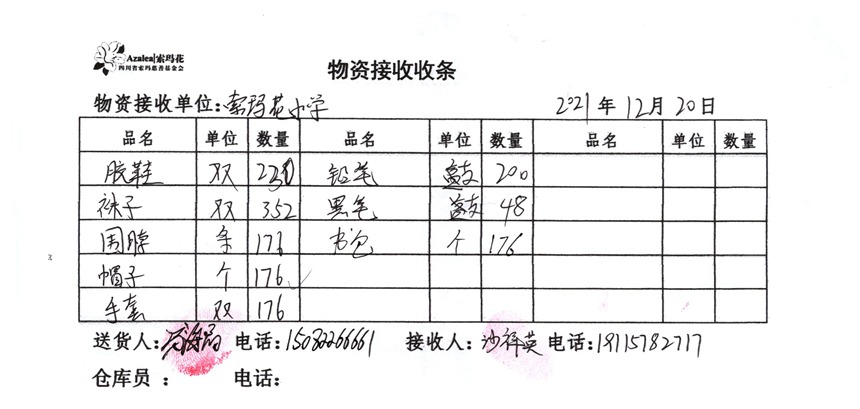 Azalea|索玛花
四川省索玛慈善基金会
物资接收收条
物资接收单位:索玛花小学 2021年12月20日
品名 单位 数量 品名 单位 数量 品名 单位 数量
胶鞋 双 230 铅笔 支 200
袜子 双 352 黑笔 支 48
围脖 条 176 书包 个 176
帽子 个 176
手套 双 176
送货人: 电话:15082266661 接收人:沙祥英 电话:18115782717
仓库员 : 电话: